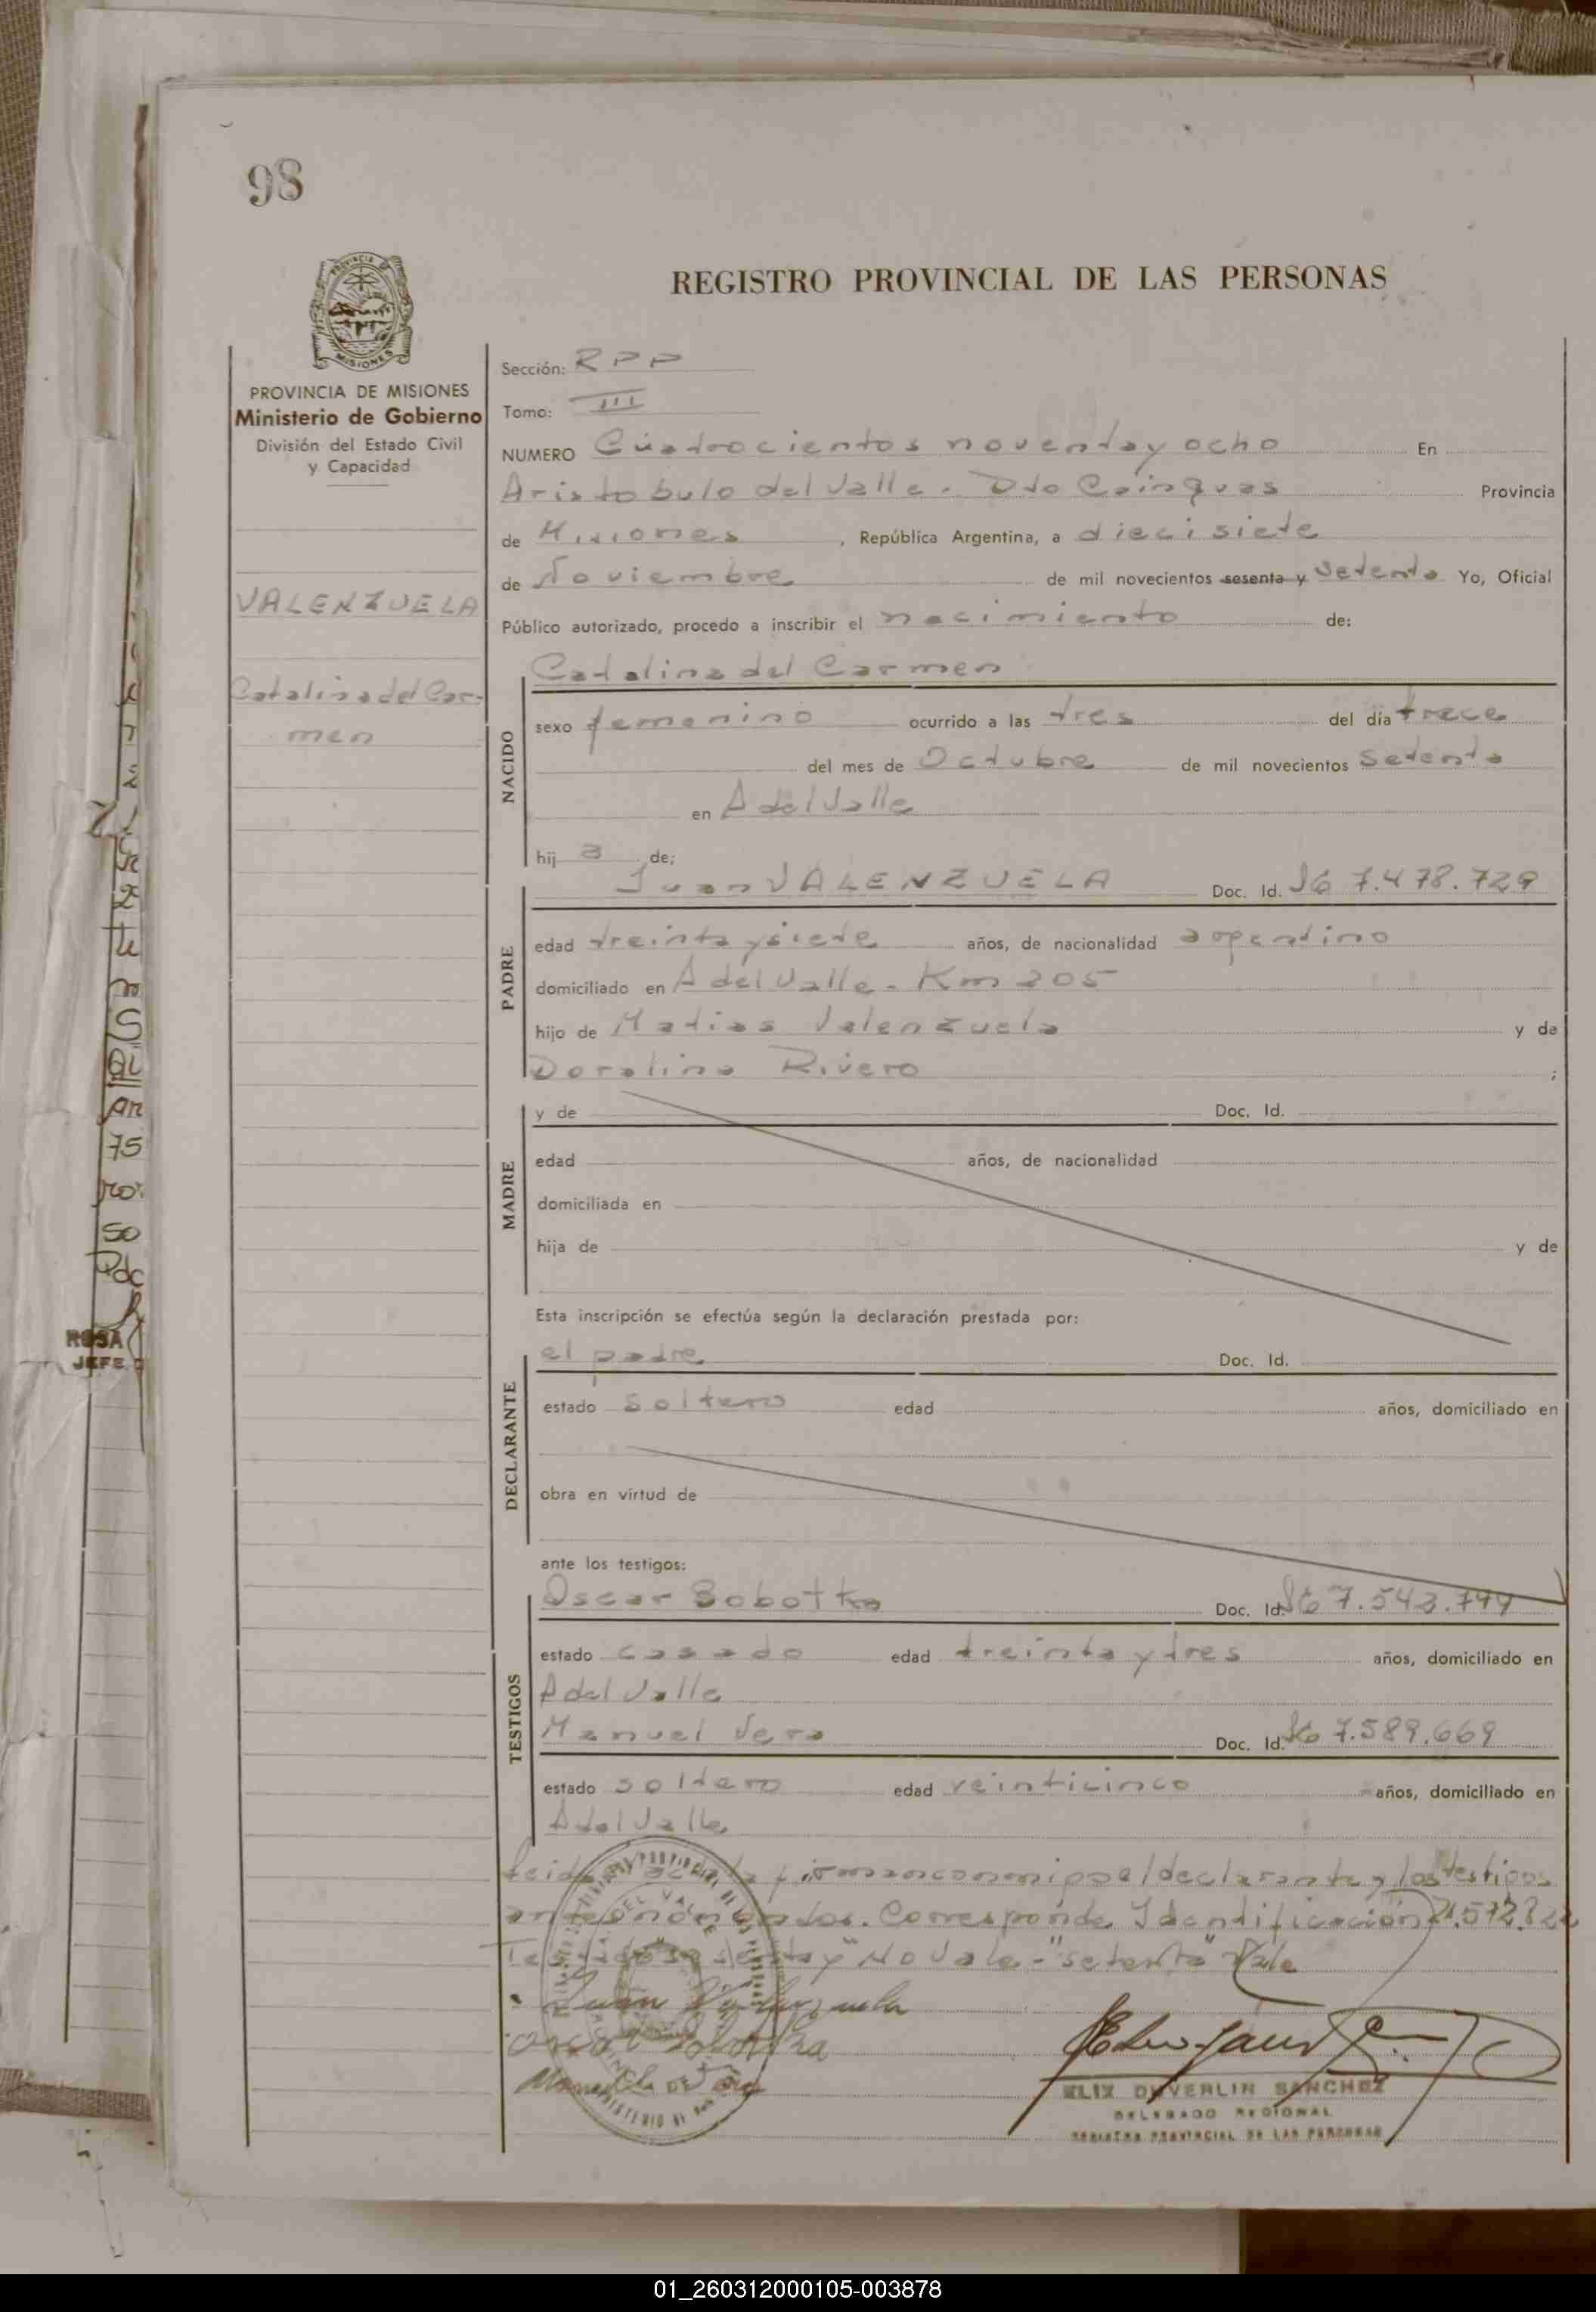 98
REGISTRO PROVINCIAL DE LAS PERSONAS
PROVINCIA DE MISIONES
Ministerio de Gobierno
División del Estado Civil
y Capacidad
VALENZUELA
Catalina del Car-
men
Sección: RPP
Tomo: III
NUMERO Cuadrocientos noventa y ocho En
Aristobulo del Valle - Dto Cainguas Provincia
de Misiones, República Argentina, a diecisiete
de Noviembre de mil novecientos sesenta y Setenta Yo, Oficial
Público autorizado, procedo a inscribir el nacimiento de:
Catalina del Carmen
NACIDO
sexo femenino ocurrido a las tres del día trece
del mes de Octubre de mil novecientos Setenta
en A del Valle
hij a de;
Juan VALENZUELA Doc. Id. 7.478.729
PADRE
edad treinta y siete años, de nacionalidad argentino
domiciliado en A del Valle - Km 205
hijo de Matias Valenzuela y de
Doralina Rivero ;
MADRE
y de Doc. Id.
edad años, de nacionalidad
domiciliada en
hija de y de
Esta inscripción se efectúa según la declaración prestada por:
DECLARANTE
el padre Doc. Id.
estado soltero edad años, domiciliado en
obra en virtud de
ante los testigos:
TESTIGOS
Oscar Sobotka Doc. Id. 7.543.744
estado casado edad treinta y tres años, domiciliado en
A del Valle
Manuel Vera Doc. Id. 7.589.669
estado soltero edad veinticinco años, domiciliado en
A del Valle
Leida el acta firman conmigo el declarante y los testigos
antenombrados. Corresponde Identificación 21.572.822
Testado "sesenta y" No Vale - "setenta" Vale
Juan Valenzuela
Oscar Sobotka
Manuel Vera
ELIX DUVERLIN SANCHEZ
DELEGADO REGIONAL
REGISTRO PROVINCIAL DE LAS PERSONAS
75
50
ROSA
JEFE
01_260312000105-003878